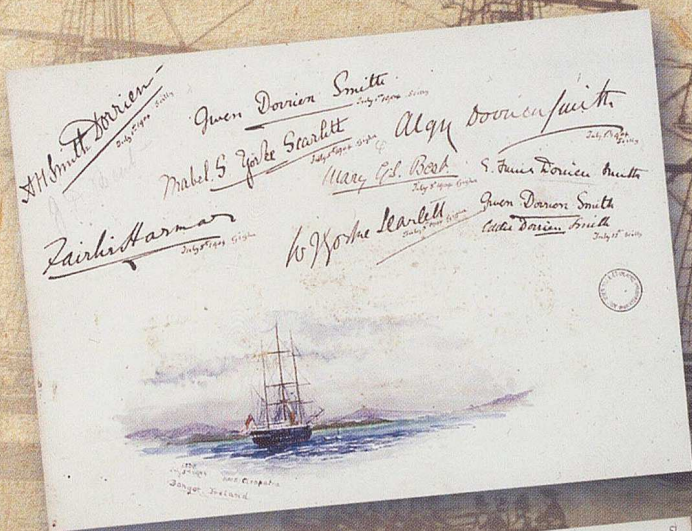 AH Smith Dorrien
July 1904 Scilly
Gwen Dorrien Smith
July 1904 Scilly
Mabel S Yorke Scarlett
July 5th 1904 Gigha
Algy Dorrien Smith
July 1904 Scilly
Mary G.S.
July 5th 1904 Gigha
Dorrien Smith
Fairlie Harmar
July 5th 1904 Gigha
W Yorke Scarlett
July 5 1904 Gigha
Gwen Dorrien Smith
Cicely Dorrien Smith
July Scilly
Cleopatra
Bangor, Ireland